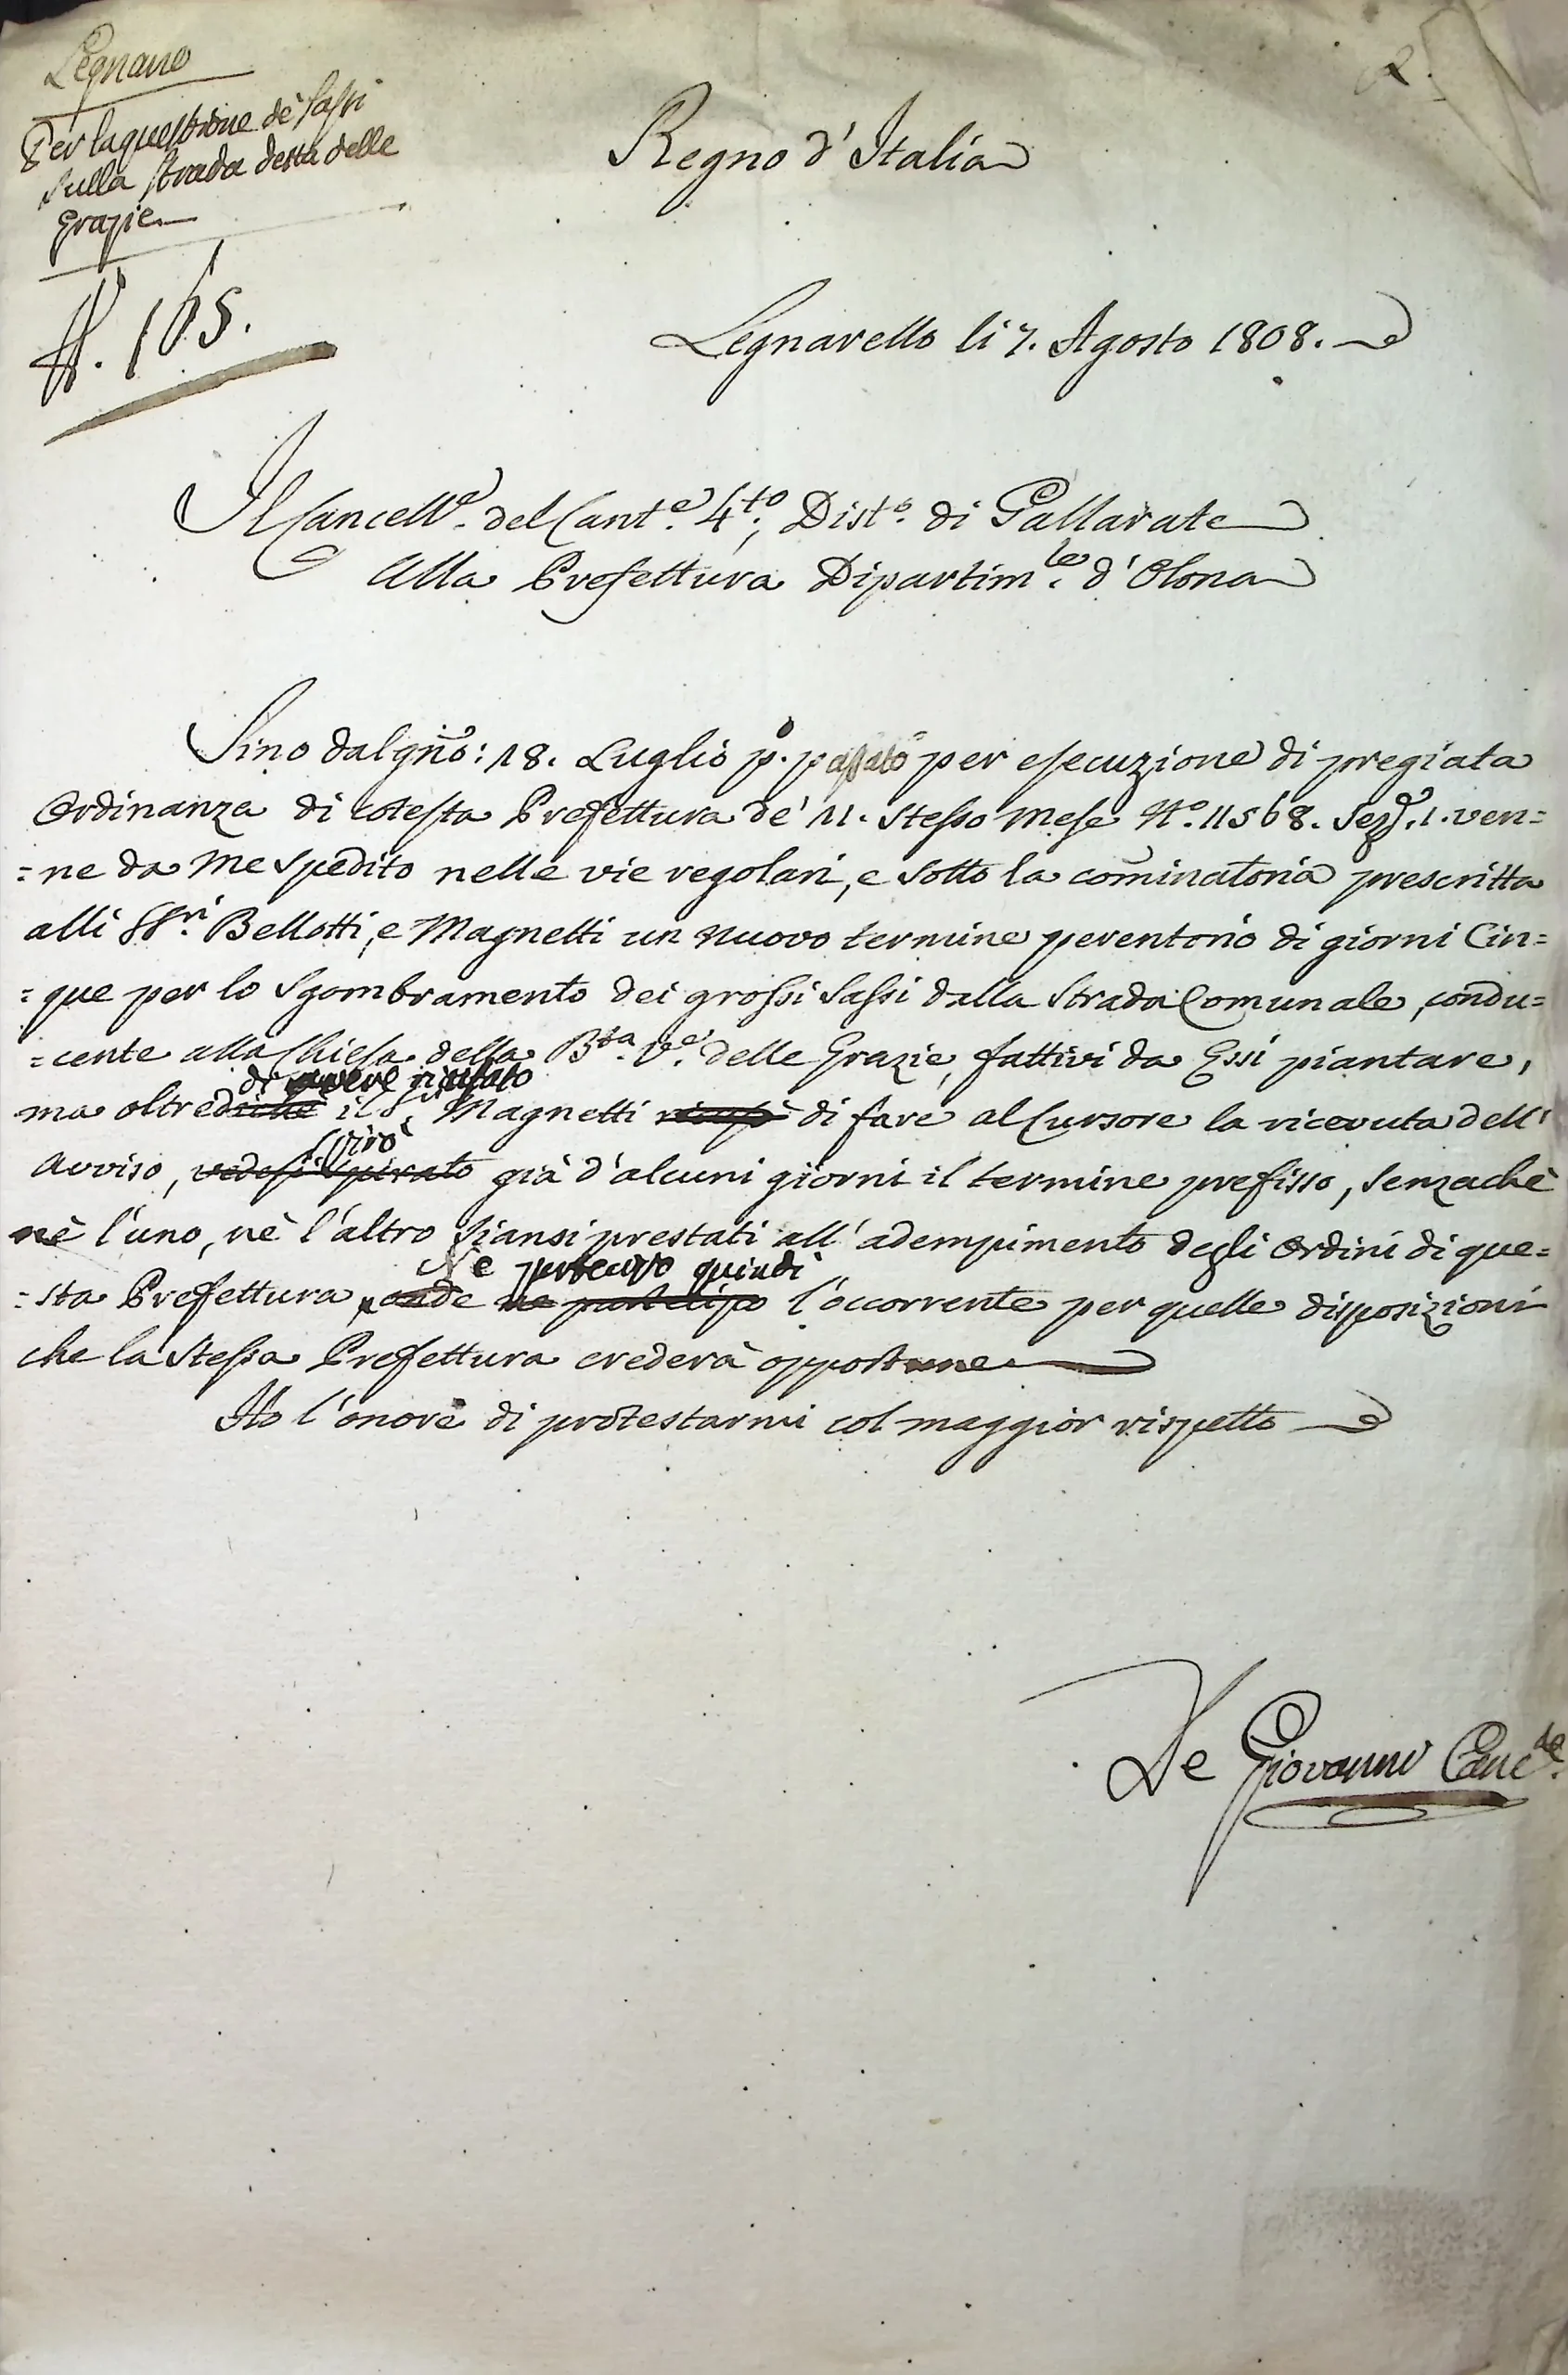 Legnano
Per la questione de' Sassi
sulla strada detta delle
Grazie
N. 165.
2.
Regno d'Italia
Legnarello li 7. Agosto 1808.
Il Cancell.e del Cant.e 4.to, Dist.o di Gallarate
Alla Prefettura Dipartim.le d'Olona
Sino dal gno: 18. Luglio p.o passato per esecuzione di pregiata
Ordinanza di cotesta Prefettura de' 11. stesso mese N.o 11568. Sez. 1. ven=
=ne da me spedito nelle vie regolari, e sotto la cominatoria prescritta
alli SS.ri Bellotti, e Magnetti un nuovo termine perentorio di giorni Cin=
=que per lo sgombramento dei grossi Sassi dalla Strada Comunale, condu=
=cente alla Chiesa della B.ta V.e delle Grazie, fattivi da Essi piantare,
di avere ricusato
ma oltre diche il S.r Magnetti ricusò di fare al Cursore la ricevuta dell'
spirò
Avviso, vedesi spirato già d'alcuni giorni il termine prefisso, senzachè
nè l'uno, nè l'altro siansi prestati all'adempimento degli Ordini di que=
Ne porgo quindi
=sta Prefettura, onde ne partecipo l'occorrente per quelle disposizioni
che la stessa Prefettura crederà opportune
Ho l'onore di protestarmi col maggior rispetto
De Giovanni Canc.re